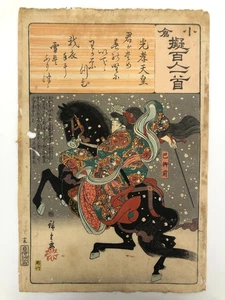 小倉
擬百人一首
光孝天皇
君がため
春の野に
出て
わかな
つむ
我衣手に
雪は
ふりつゝ
巴御前
広重画